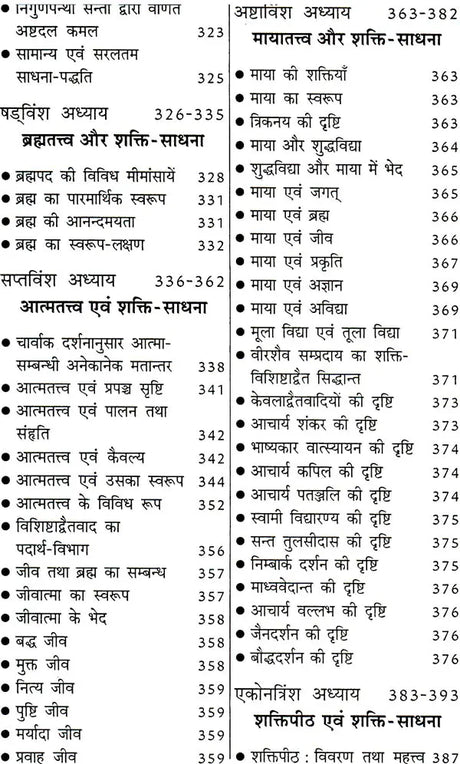 निर्गुणपन्थी सन्तों द्वारा वर्णित
अष्टदल कमल 323
● सामान्य एवं सरलतम
साधना-पद्धति 325
षड्विंश अध्याय 326-335
ब्रह्मतत्त्व और शक्ति-साधना
● ब्रह्मपद की विविध मीमांसायें 328
● ब्रह्म का पारमार्थिक स्वरूप 331
● ब्रह्म की आनन्दमयता 331
● ब्रह्म का स्वरूप-लक्षण 332
सप्तविंश अध्याय 336-362
आत्मतत्त्व एवं शक्ति-साधना
● चार्वाक दर्शनानुसार आत्मा-
सम्बन्धी अनेकानेक मतान्तर 338
● आत्मतत्त्व एवं प्रपञ्च सृष्टि 341
● आत्मतत्त्व एवं पालन तथा
संहृति 342
● आत्मतत्त्व एवं कैवल्य 342
● आत्मतत्त्व एवं उसका स्वरूप 344
● आत्मतत्त्व के विविध रूप 352
● विशिष्टाद्वैतवाद का
पदार्थ-विभाग 356
● जीव तथा ब्रह्म का सम्बन्ध 357
● जीवात्मा का स्वरूप 357
● जीवात्मा के भेद 358
● बद्ध जीव 358
● मुक्त जीव 358
● नित्य जीव 359
● पुष्टि जीव 359
● मर्यादा जीव 359
● प्रवाह जीव 359
अष्टाविंश अध्याय 363-382
मायातत्त्व और शक्ति-साधना
● माया की शक्तियाँ 363
● माया का स्वरूप 363
● त्रिकनय की दृष्टि 363
● माया और शुद्धविद्या 364
● शुद्धविद्या और माया में भेद 365
● माया एवं जगत् 365
● माया एवं ब्रह्म 366
● माया एवं जीव 366
● माया एवं प्रकृति 367
● माया एवं अज्ञान 369
● माया एवं अविद्या 369
● मूला विद्या एवं तूला विद्या 371
● वीरशैव सम्प्रदाय का शक्ति-
विशिष्टाद्वैत सिद्धान्त 371
● केवलाद्वैतवादियों की दृष्टि 373
● आचार्य शंकर की दृष्टि 373
● भाष्यकार वात्स्यायन की दृष्टि 374
● आचार्य कपिल की दृष्टि 374
● आचार्य पतञ्जलि की दृष्टि 374
● स्वामी विद्यारण्य की दृष्टि 375
● सन्त तुलसीदास की दृष्टि 375
● निम्बार्क दर्शन की दृष्टि 375
● माध्ववेदान्त की दृष्टि 376
● आचार्य वल्लभ की दृष्टि 376
● जैनदर्शन की दृष्टि 376
● बौद्धदर्शन की दृष्टि 376
एकोनत्रिंश अध्याय 383-393
शक्तिपीठ एवं शक्ति-साधना
● शक्तिपीठ : विवरण तथा महत्त्व 387